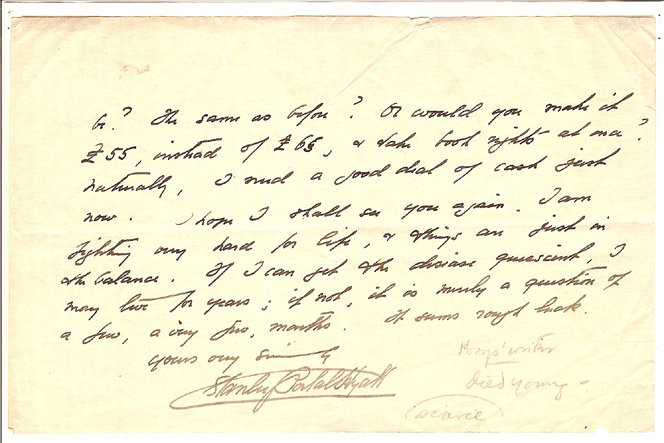 be? The same as before? Or would you make it
£55, instead of £65, & take book rights at once?
Naturally, I need a good deal of cash just
now. I hope I shall see you again. I am
fighting very hard for life, & things are just in
the balance. If I can get the disease quiescent, I
may live for years; if not, it is merely a question of
a few, a very few, months. It seems rough luck.
Yours very sincerely
Stanley Portal Hyatt
Boys' writer
Died young –
(scarce)